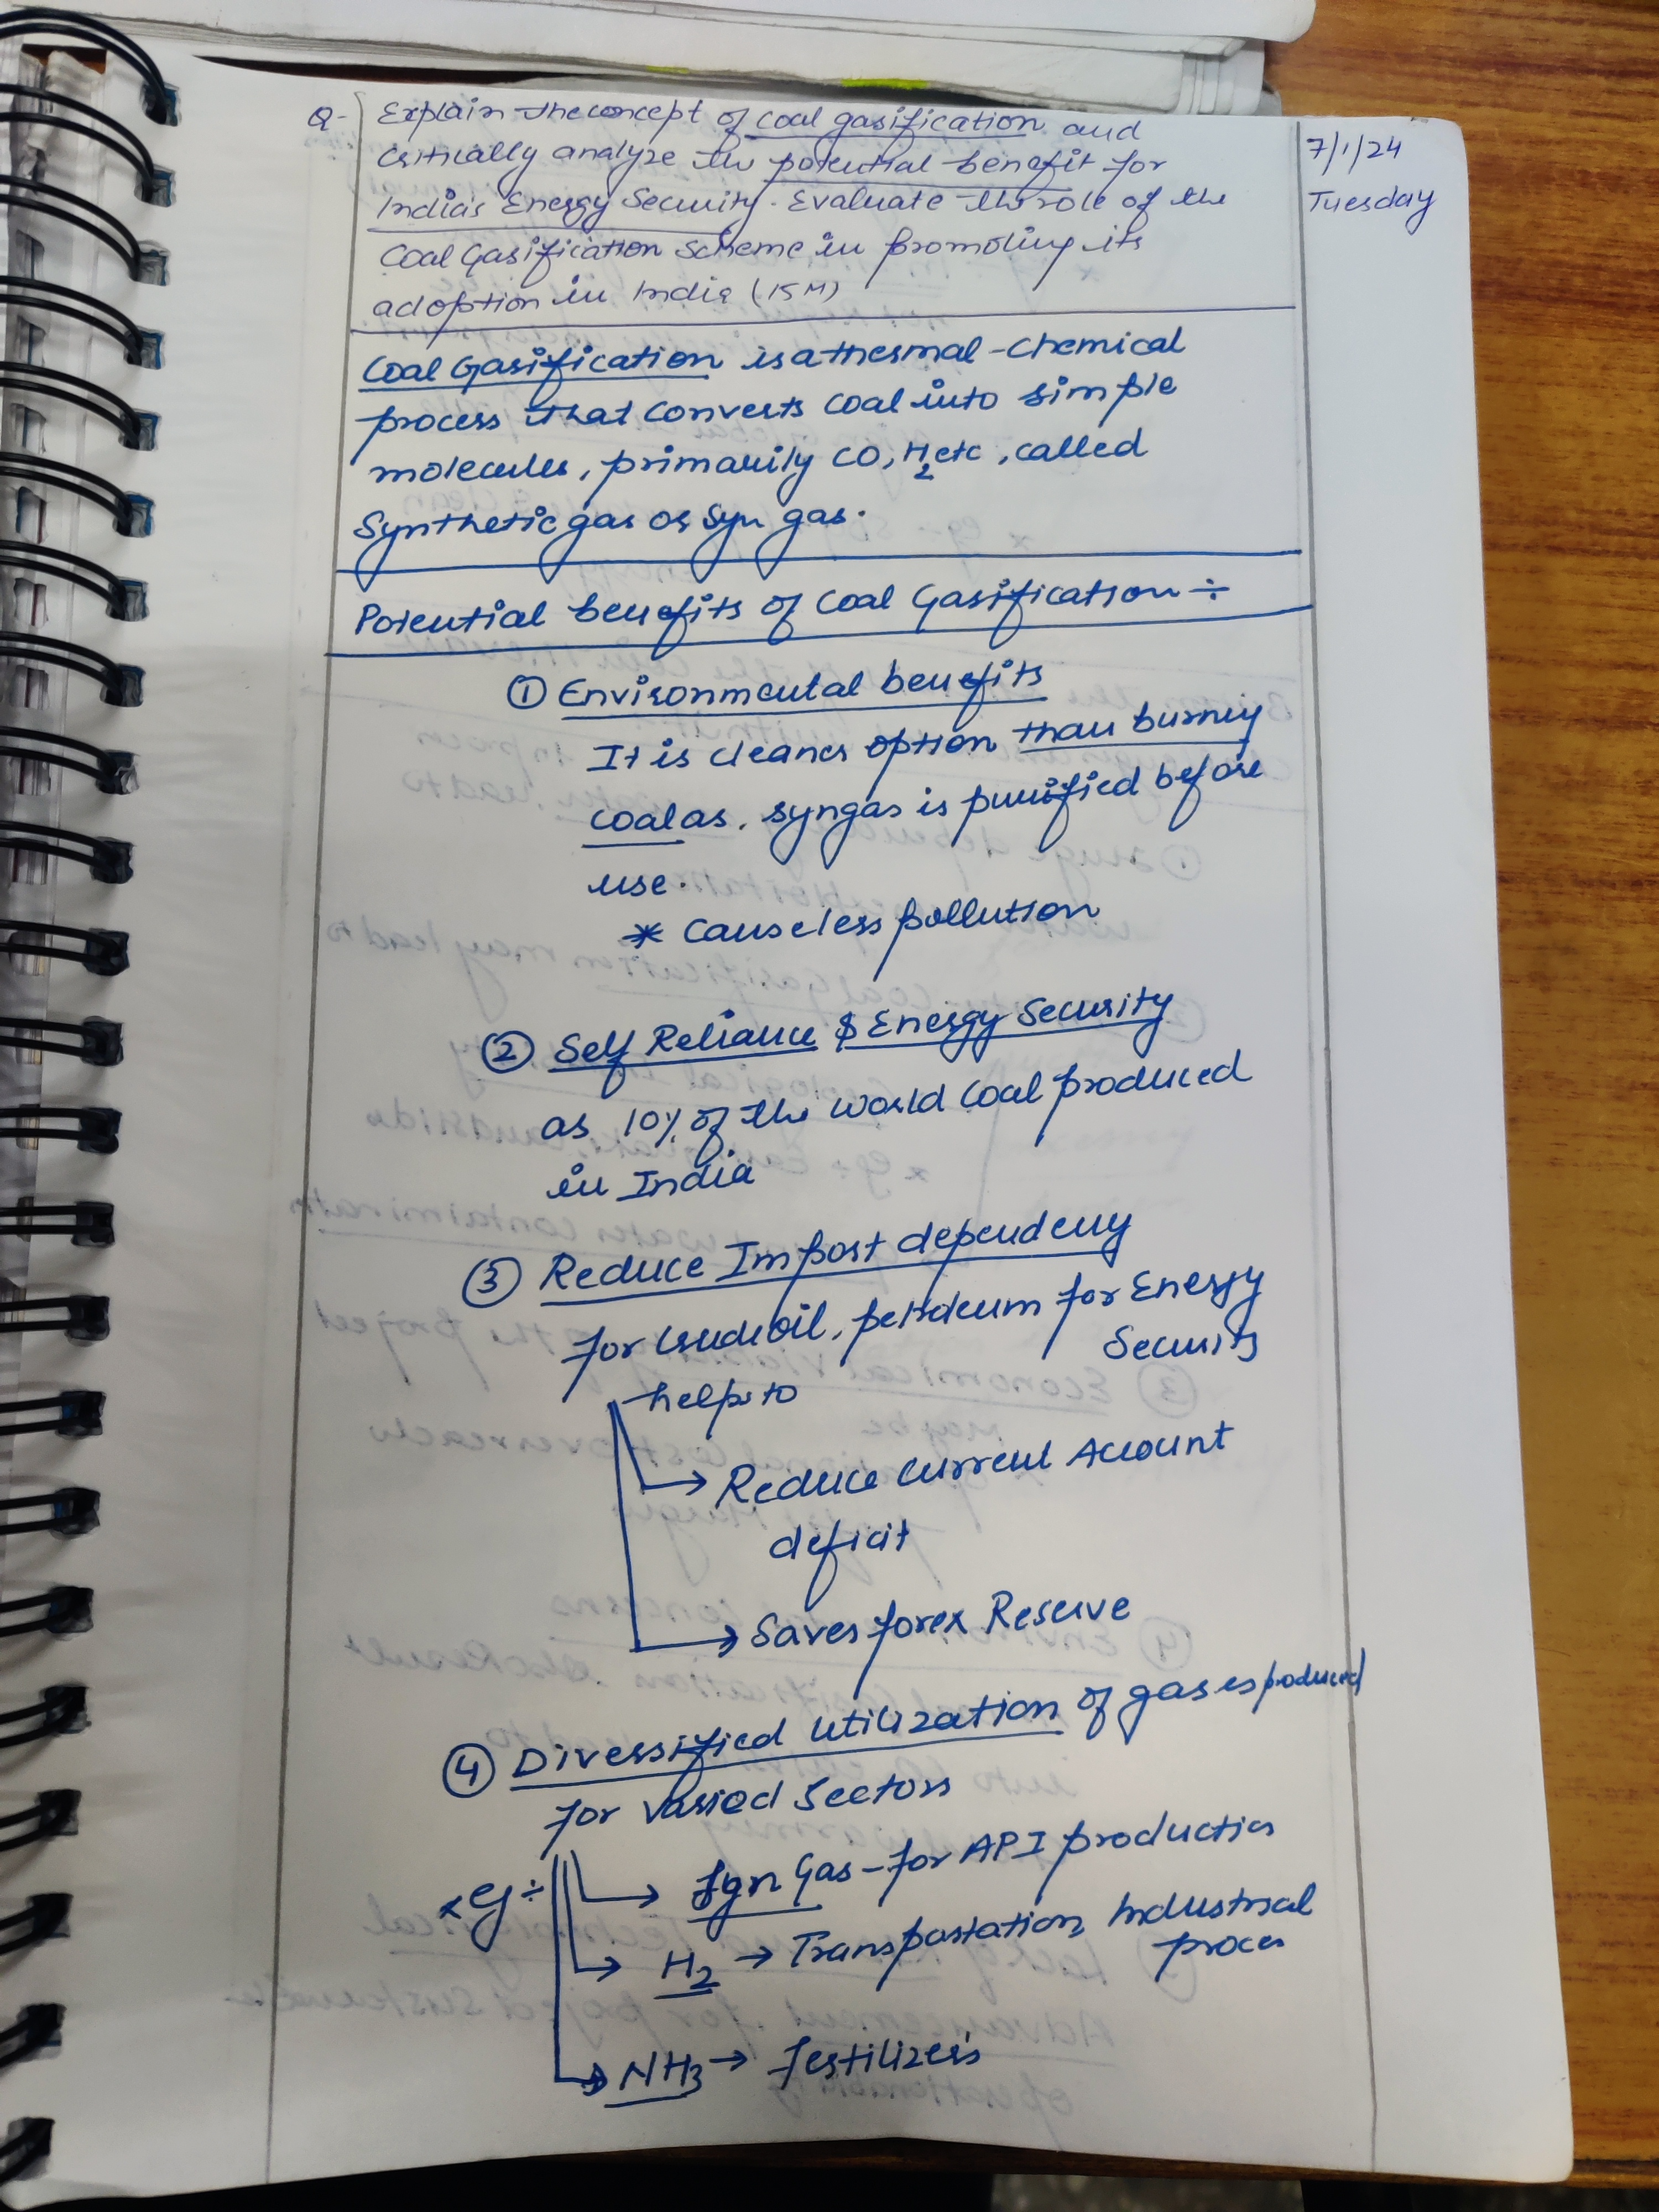 Q- Explain the concept of coal gasification and
critically analyze the potential benefit for
India's Energy Security. Evaluate the role of the
Coal Gasification Scheme in promoting its
adoption in India (15M)
7/1/24
Tuesday
Coal Gasification is a thermal-chemical
process that converts coal into simple
molecules, primarily CO, H2 etc, called
Synthetic gas or Syn gas.
Potential benefits of Coal Gasification ÷
① Environmental benefits
It is cleaner option than burning
coal as, syngas is purified before
use.
* Cause less pollution
② Self Reliance & Energy Security
as 10% of the world Coal produced
in India
③ Reduce Import dependency
for crude oil, petroleum for Energy
Security
helps to
→ Reduce Current Account
deficit
→ Saves forex Reserve
④ Diversified Utilization of gases produced
for varied Sectors
* eg ÷ → Syn Gas - for API production
→ H2 → Transportation, Industrial
process
→ NH3 → fertilizers